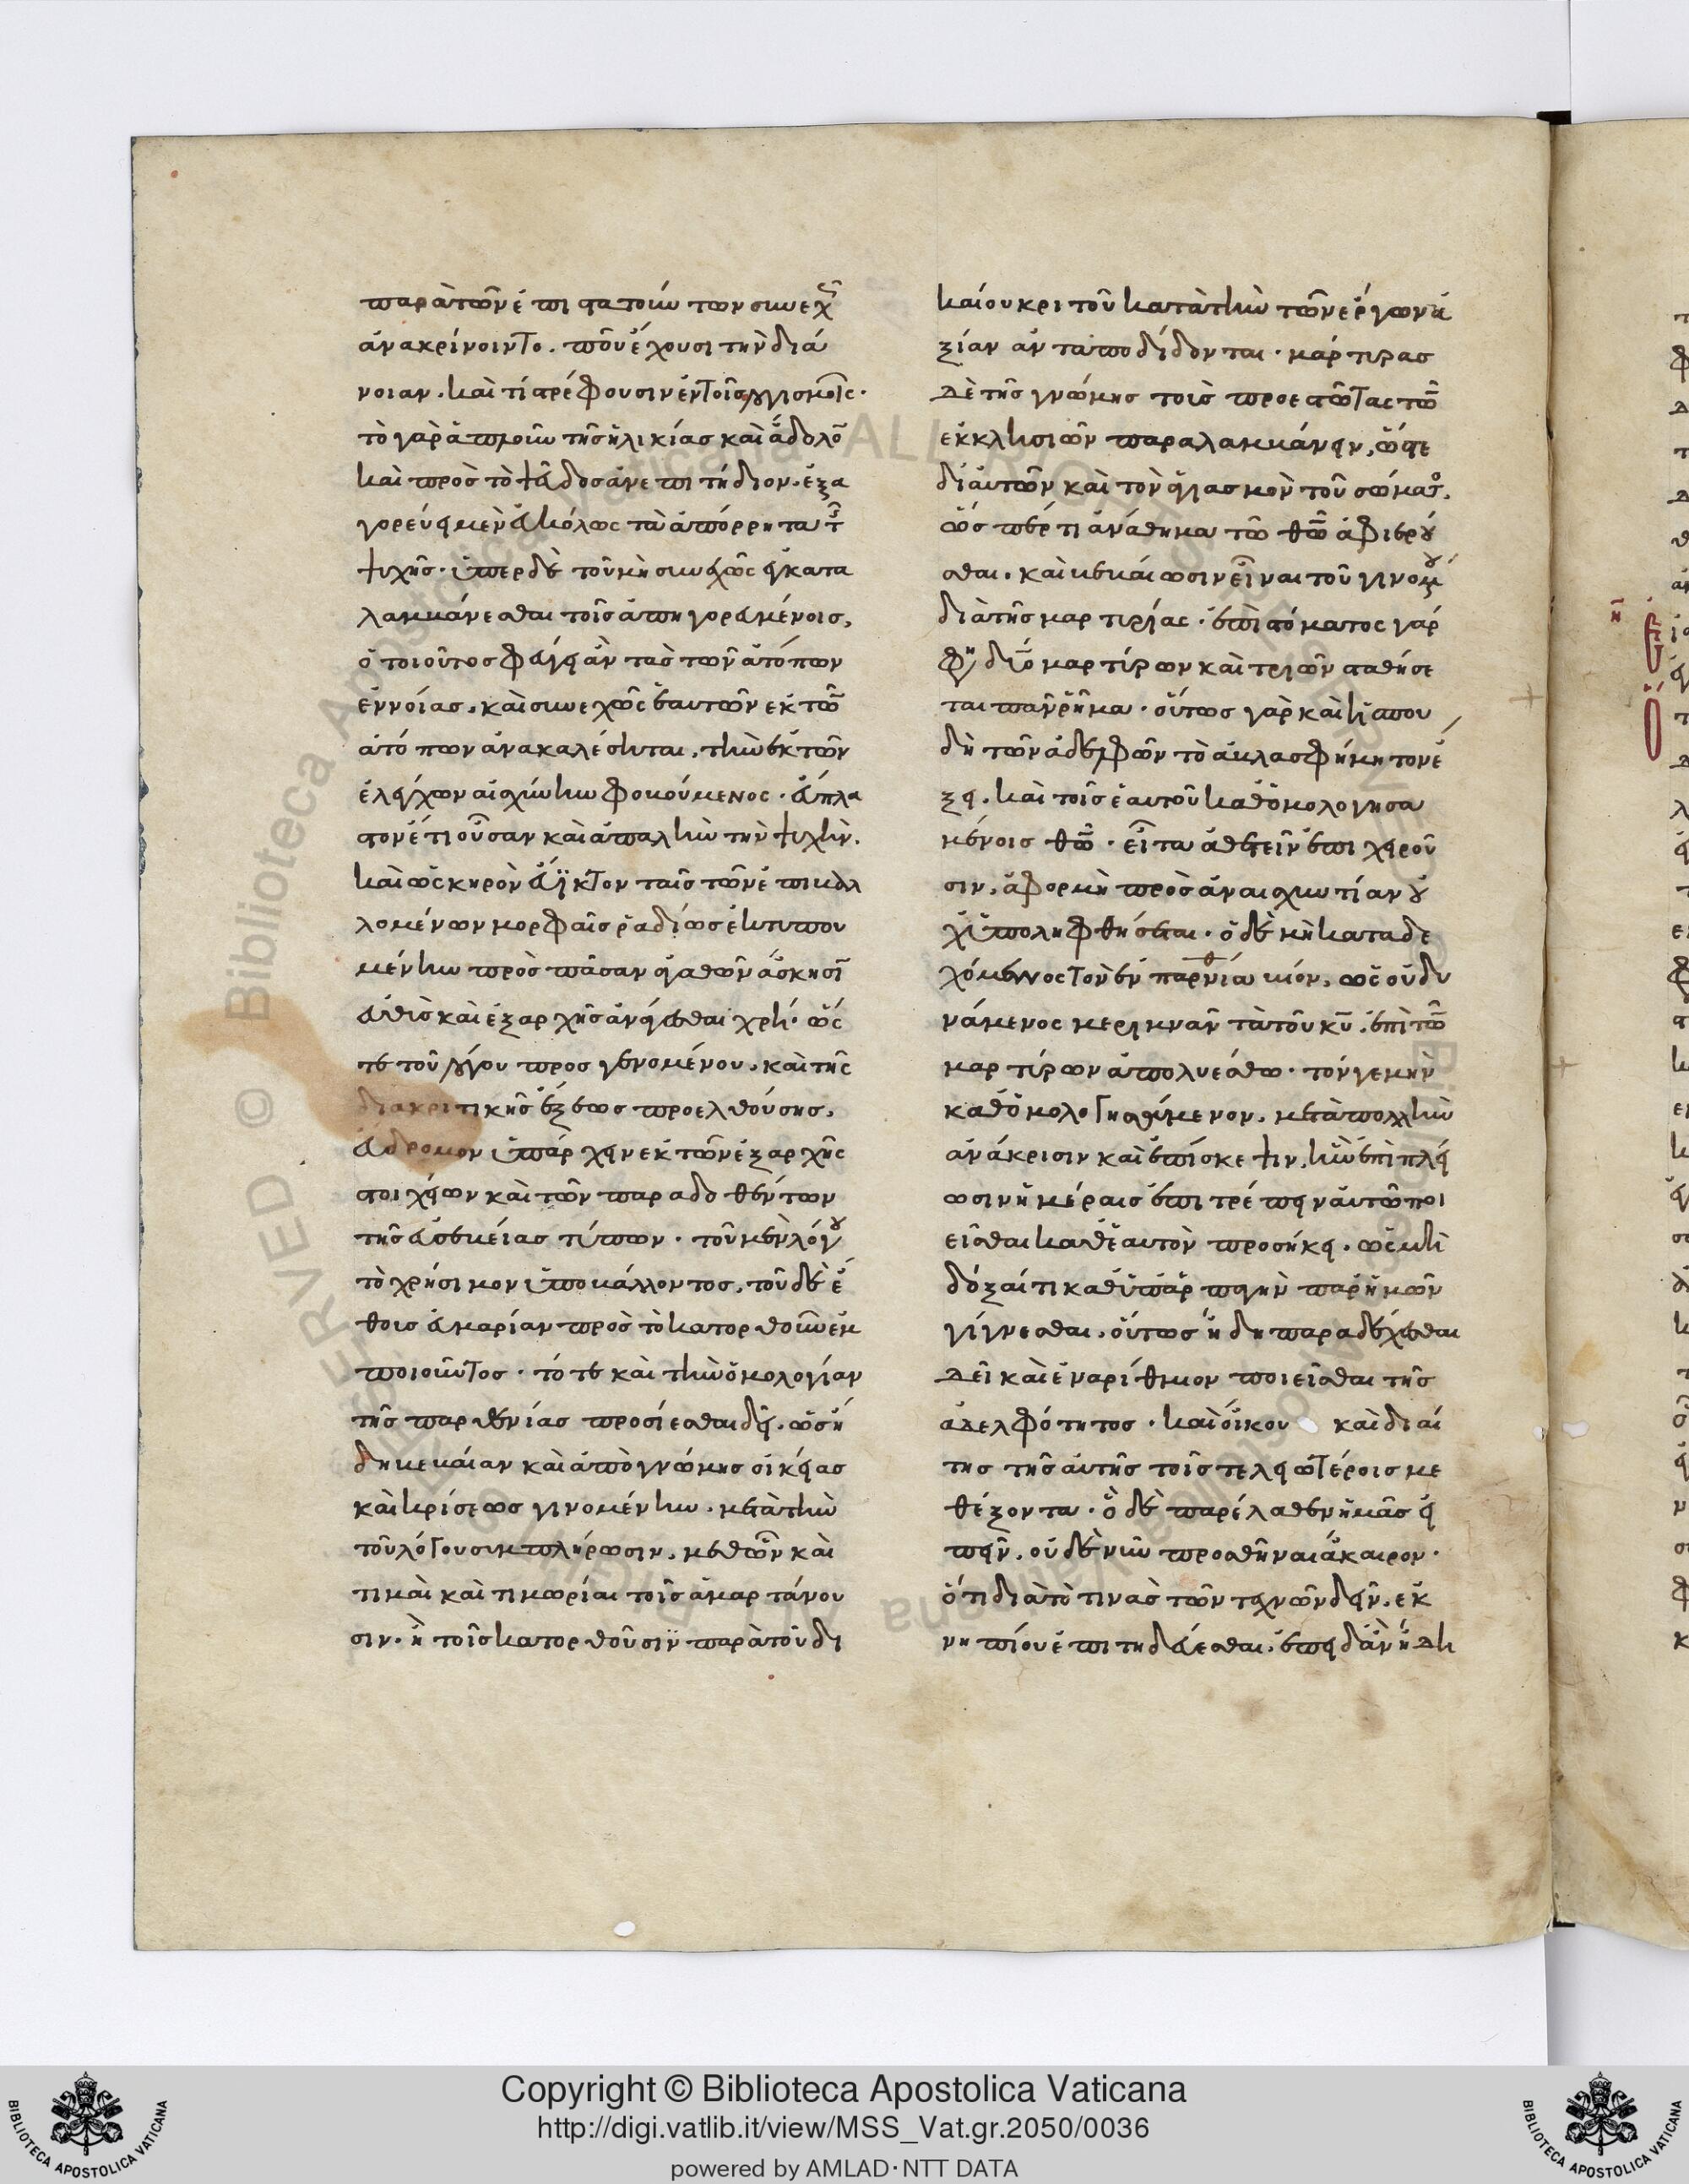 παρὰ τῶν ἐπιστατούντων συνεχῶς
ἀνακρίνοιντο. ποῦ ἔχουσι τὴν διά
νοιαν. καὶ τί στρέφουσιν ἐν τοῖς λογισμοῖς.
τὸ γὰρ ἁπλοῦν τῆς ἡλικίας καὶ ἄδολον
καὶ πρὸς τὸ ψεῦδος ἀνεπιτήδιον. ἐξα
γορεύει μὲν εὐκόλως τὰ ἀπόρρητα τῆς
ψυχῆς. ὑπὲρ δὲ τοῦ μὴ συνεχῶς ἐγκατα
λαμβάνεσθαι τοῖς ἀπηγορευμένοις,
ὁ τοιοῦτος φεύγει ἂν τὰς τῶν ἀτόπων
ἐννοίας. καὶ συνεχῶς ἑαυτὸν ἐκ τῶν
ἀτόπων ἀνακαλέσηται, τὴν ἐκ τῶν
ἐλέγχων αἰσχύνην φοβούμενος. εὔπλα
στον ἔτι οὖσαν καὶ ἁπαλὴν τὴν ψυχήν.
καὶ ὡς κηρὸν εὔϊκτον ταῖς τῶν ἐπιβαλ
λομένων μορφαῖς ῥαδίως ἐκτυπου
μένην πρὸς πᾶσαν ἀγαθῶν ἄσκησιν
εὐθὺς καὶ ἐξαρχῆς ἀνάγεσθαι χρή. ὥς
τε τοῦ λόγου προσγενομένου. καὶ τῆς
διακριτικῆς ἕξεως προελθούσης,
εὔδρομον ὑπάρχειν ἐκ τῶν ἐξαρχῆς
στοιχείων καὶ τῶν παραδοθέντων
τῆς εὐσεβείας τύπων. τοῦ μὲν λόγου
τὸ χρήσιμον ὑποβάλλοντος, τοῦ δὲ ἔ
θους εὐμαρίαν πρὸς τὸ κατορθοῦν ἐμ
ποιοῦντος. τότε καὶ τὴν ὁμολογίαν
τῆς παρθενίας προσίεσθαι δεῖ. ὡς ἤ
δη βεβαίαν καὶ ἀπὸ γνώμης οἰκείας
καὶ κρίσεως γινομένην. μετὰ τὴν
τοῦ λόγου συμπλήρωσιν, μεθ᾽ ὧν καὶ
τιμαὶ καὶ τιμωρίαι τοῖς ἁμαρτάνου
σιν. ἢ τοῖς κατορθοῦσιν παρὰ τοῦ δι
καίου κριτοῦ κατὰ τὴν τῶν ἔργων ἀ
ξίαν ἀνταποδίδονται. μάρτυρας
δὲ τῆς γνώμης τοὺς προεστῶτας τῶν
ἐκκλησιῶν παραλαμβάνειν, ὥστε
δι᾽ αὐτῶν καὶ τὸν ἁγιασμὸν τοῦ σώματος.
ὥσπερ τι ἀνάθημα τῶ θεῶ ἀφιεροῦ
σθαι. καὶ βεβαίωσιν εἶναι τοῦ γινομένου
διὰ τῆς μαρτυρίας. ἐπὶ στόματος γάρ
φησι δύο μαρτύρων καὶ τριῶν σταθήσε
ται πᾶν ῥῆμα. οὕτως γὰρ καὶ ἡ σπου
δὴ τῶν ἀδελφῶν τὸ ἀβλασφήμητον ἕ
ξει. καὶ τοῖς ἑαυτοῦ καθομολογησα
μένοις θεῶ. εἶτα ἀθετεῖν ἐπιχειροῦ
σιν, ἀφορμὴ πρὸς ἀναισχυντίαν οὐ
χ᾽ ὑποληφθήσεται. ὁ δὲ μὴ καταδε
χόμενος τὸν ἐν παρθενία βίον, ὡς οὐ δυ
νάμενος μεριμνᾶν τὰ τοῦ κυ, ἐπὶ τῶν
μαρτύρων ἀπολυέσθω. τόν γε μὴν
καθομολογησάμενον, μετὰ πολλὴν
ἀνάκρισιν καὶ ἐπίσκεψιν, ἣν ἐπὶ πλεί
ωσιν ἡμέραις ἐπιτρέπειν αὐτῶ ποι
εῖσθαι καθ᾽ ἑαυτὸν προσήκει. ὡς μὴ
δόξαί τι καθ᾽ ὑπάρπαγὴν παρ᾽ ἡμῶν
γίγνεσθαι. οὕτως ἤδη παραδέχεσθαι
δεῖ καὶ ἐναρίθμιον ποιεῖσθαι τῆς
ἀδελφότητος. καὶ οἴκου καὶ διαί
της τῆς αὐτῆς τοῖς τελειωτέροις με
θέξοντα. ὃ δὲ παρέλαθεν ἡμᾶς εἰ
πεῖν. οὐδὲ νῦν προσθῆναι ἄκαιρον.
ὅτι διὰ τὸ τινὰς τῶν τεχνῶν δεῖν. ἐκ
νηπίου ἐπιτηδεύεσθαι. ἐπειδὰν ἤδη